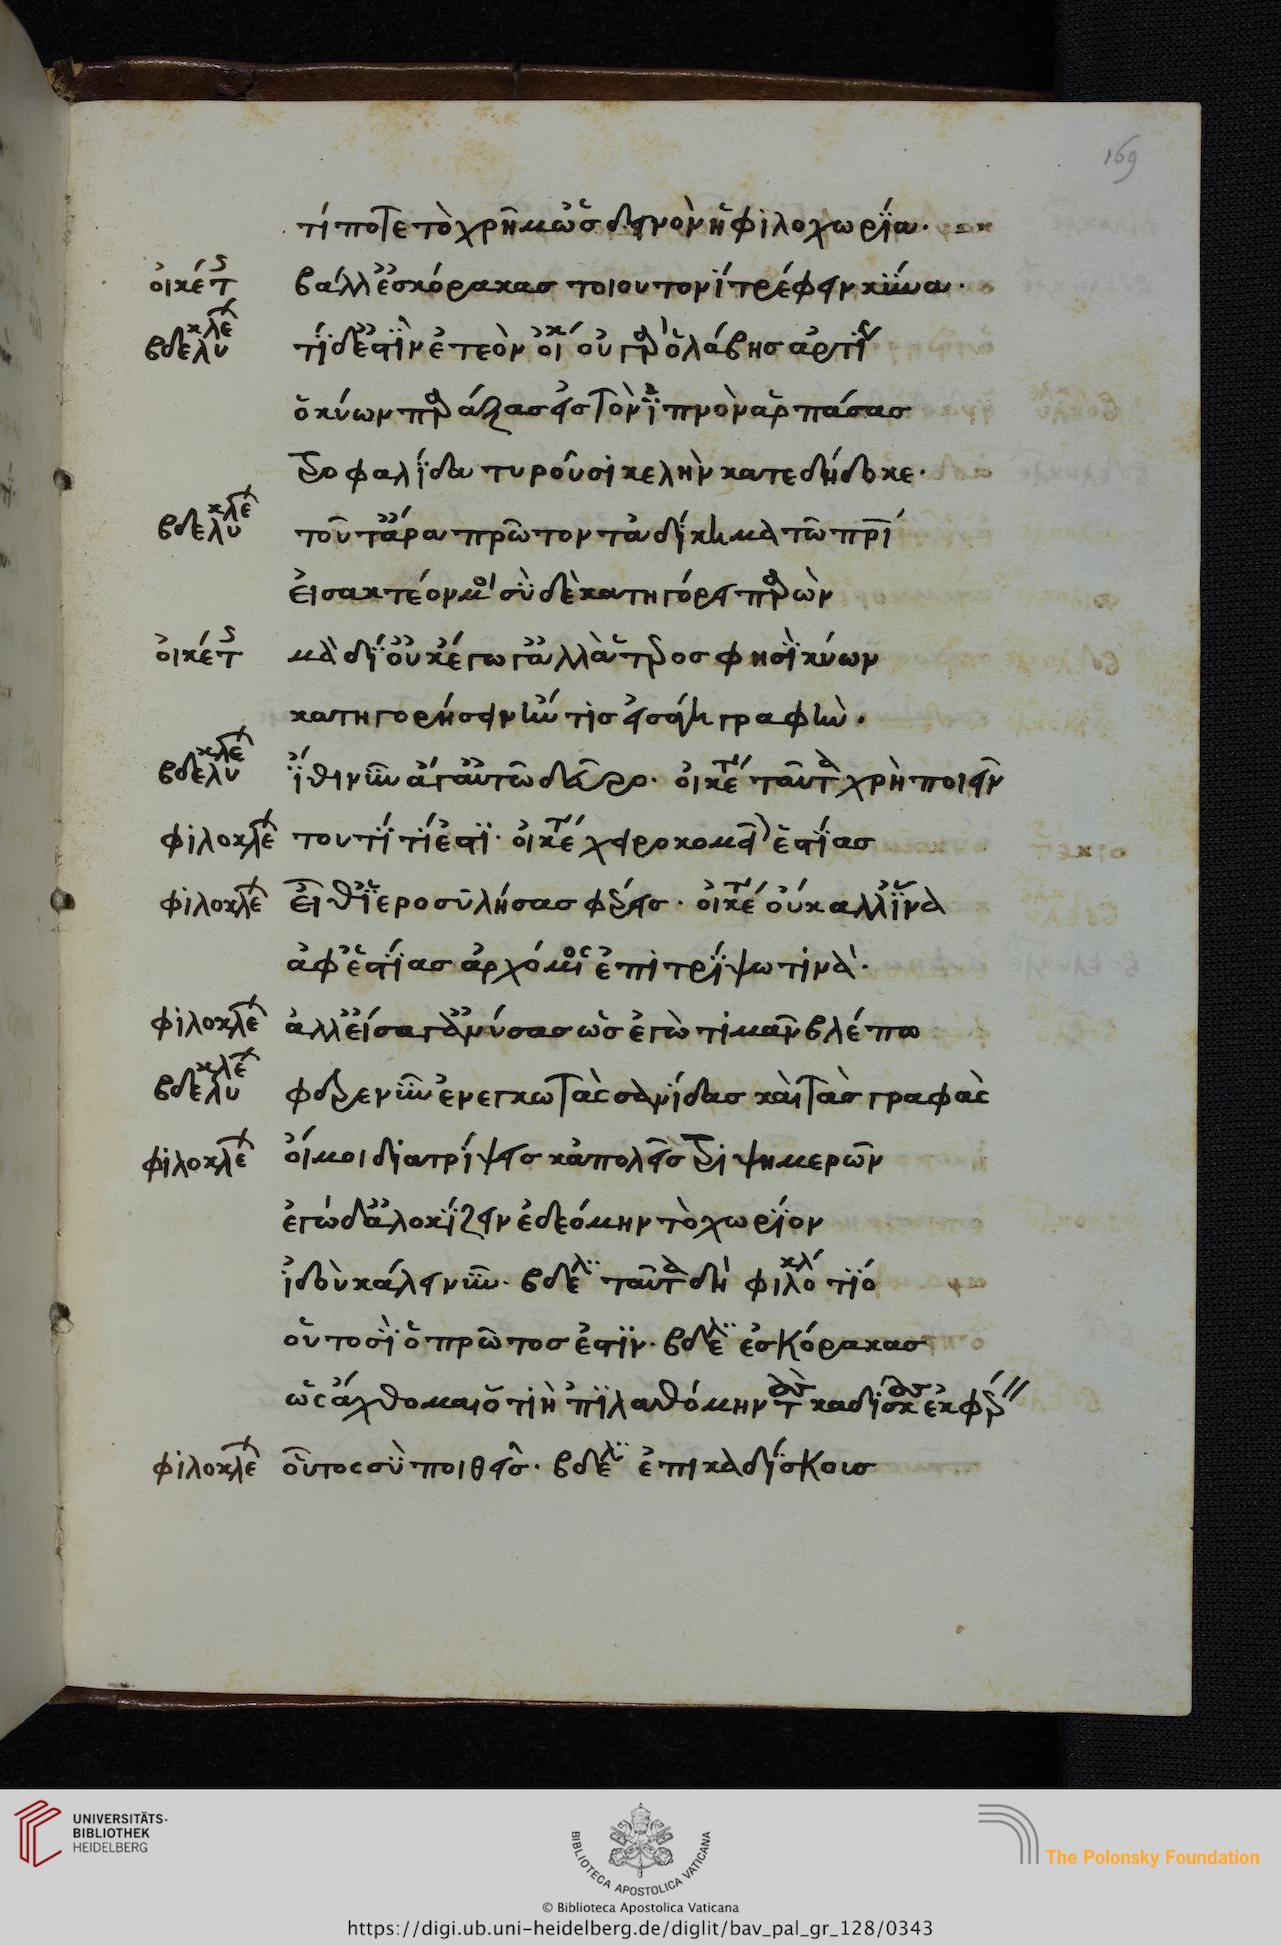 169
τί ποτε τὸ χρῆμ' ὡς δεινὸν ἡ φιλοχωρία.
οἰκέτ βάλλ' ἐς κόρακας τοιουτονὶ τρέφειν κύνα.
βδελυκλέ τί δ' ἐστὶν ἐτεόν οἰκ οὐ γὰρ ὁ λάβης ἀρτί
ὁ κύων παράξας εἰς τὸν ἰπνὸν ἁρπάσας
τροφαλίδα τυροῦ σικελὴν κατεδήδοκε.
βδελυκλέ τοῦτ' ἄρα πρῶτον τἀδίκημα τῶ πρί
εἰσακτέον μοι σὺ δὲ κατηγόρει παρὼν
οἰκέτ μὰ δί' οὐκ ἔγωγ' ἀλλ' ἅτερος φησὶ κύων
κατηγορήσειν ἤν τις εἰσάγη γραφὴν.
βδελυκλέ ἴθι νῦν ἄγ' αὐτὼ δεῦρο. οἰκέτ ταῦτα χρὴ ποιεῖν
φιλοκλέ τουτὶ τί ἐστι. οἰκέτ χοιροκομεῖον ἑστίας
φιλοκλέ εἶθ' ἱεροσυλήσας φέρεις. οἰκέτ οὔκ ἀλλ' ἵνα
ἀφ' ἑστίας ἀρχόμενος ἐπιτρίψω τινά.
φιλοκλέ ἀλλ' εἴσαγ' ἀνύσας ὡς ἐγὼ τιμᾶν βλέπω
βδελυκλέ φέρε νῦν ἐνέγκω τὰς σανίδας καὶ τὰς γραφὰς
φιλοκλέ οἴμοι διατρίψεις κἀπολεῖς τριψημερῶν
ἐγὼ δ' ἀλοκίζειν ἐδεόμην τὸ χωρίον
ἰδοὺ κάλει νῦν. βδελυ ταῦτα δή φιλοκλ τί ὁ
οὑτοσὶ ὁ πρῶτος ἐστίν. βδελυ ἐς κόρακας
ὡς ἄχθομαι ὁτιὴ 'πιλαθόμην τοὺς καδίσκους ἐκφέρ
φιλοκλέ οὗτος σὺ ποῖ θεῖς. βδελυ ἐπὶ καδίσκους
UNIVERSITÄTS-
BIBLIOTHEK
HEIDELBERG
BIBLIOTECA APOSTOLICA VATICANA
The Polonsky Foundation
© Biblioteca Apostolica Vaticana
https://digi.ub.uni-heidelberg.de/diglit/bav_pal_gr_128/0343